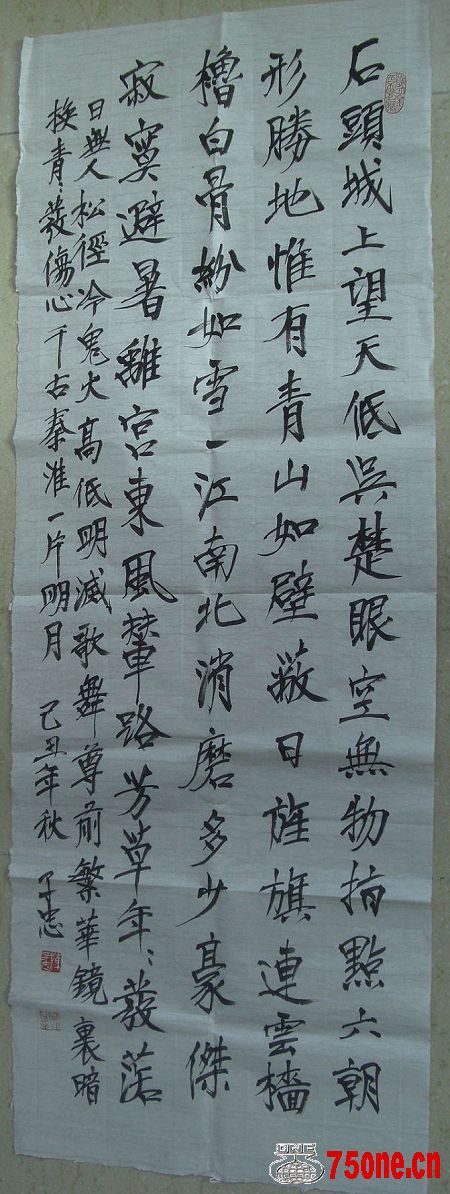 石頭城上望天低吳楚眼空無物指點六朝
形勝地惟有青山如壁蔽日旌旗連雲檣
櫓白骨紛如雪一江南北消磨多少豪傑
寂寞避暑離宮東風輦路芳草年〻發落
日無人松徑冷鬼火高低明滅歌舞尊前繁華鏡裏暗
換青〻發傷心千古秦淮一片明月 己丑年秋 子忠
ONE
75one.cn